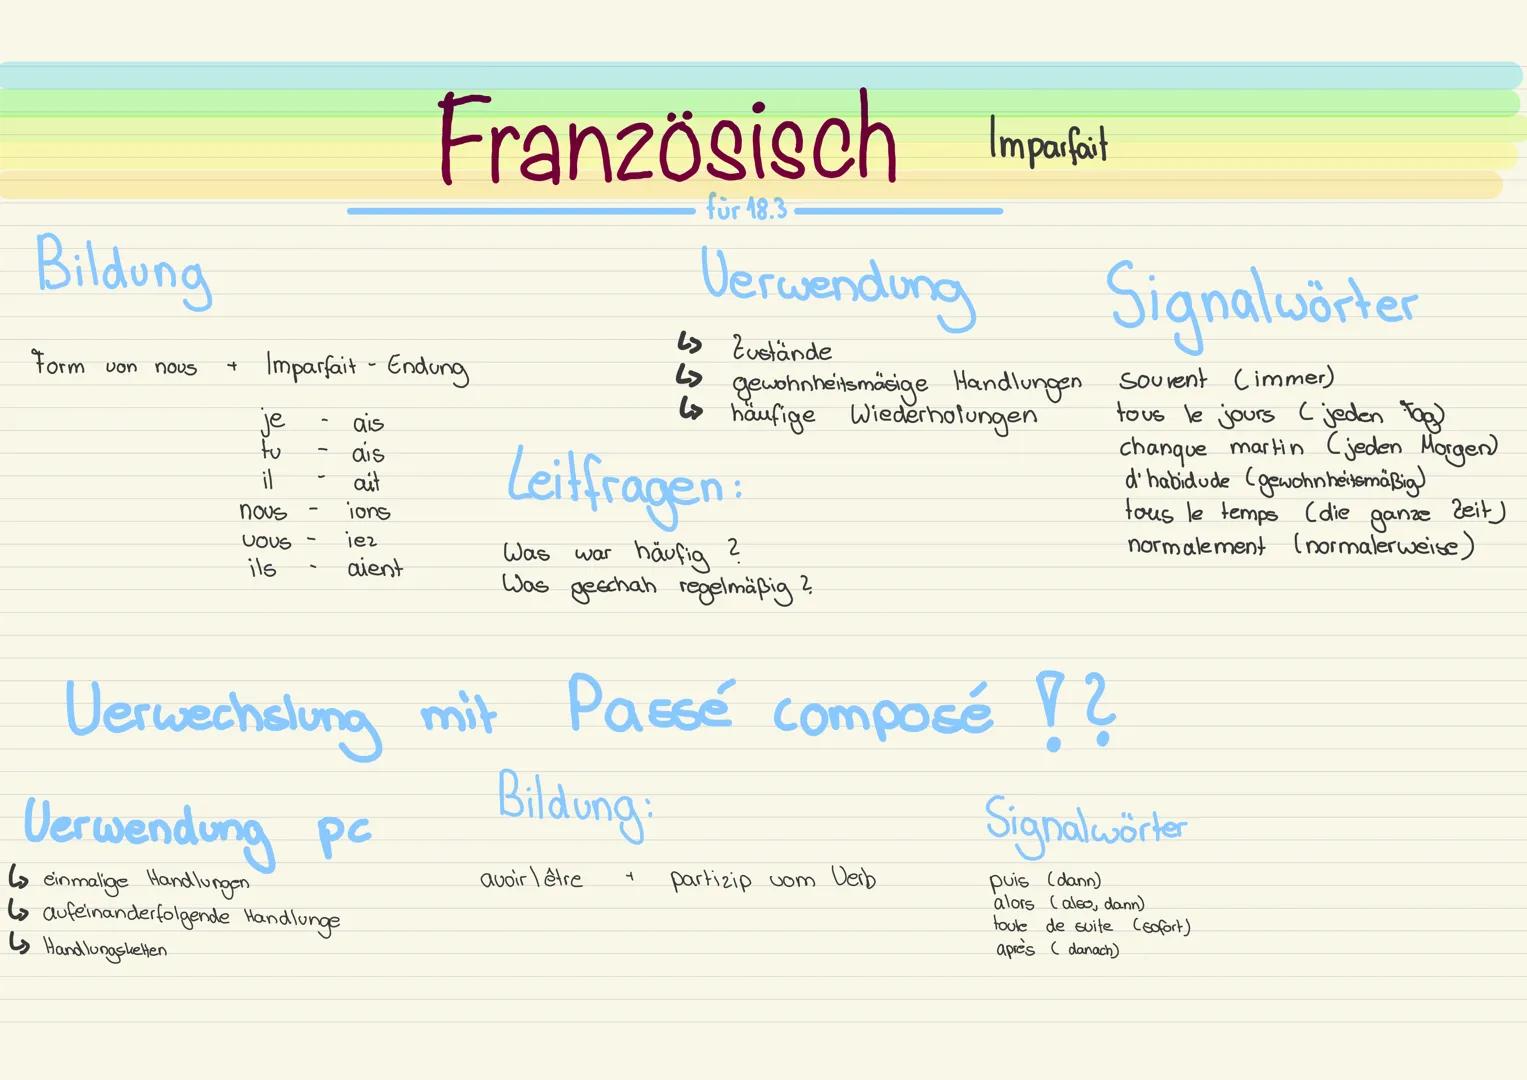 Französisch Imparfait
für 18.3
Bildung
Form von nous + Imparfait - Endung
je - ais
tu - ais
il - ait
nous - ions
vous - iez
ils - aient
Verwendung
↳ Zustände
↳ gewohnheitsmäsige Handlungen
↳ häufige Wiederholungen
Leitfragen:
Was war häufig?
Was geschah regelmäßig?
Signalwörter
souvent (immer)
tous le jours (jeden Tag)
chanque martin (jeden Morgen)
d'habidude (gewohnheitsmäßig)
tous le temps (die ganze Zeit)
normalement (normalerweise)
Verwechslung mit Passé composé !?
Verwendung pc
↳ einmalige Handlungen
↳ aufeinanderfolgende Handlunge
↳ Handlungsketten
Bildung:
avoir\être + partizip vom Verb
Signalwörter
puis (dann)
alors (also, dann)
toute de suite (sofort)
après (danach)